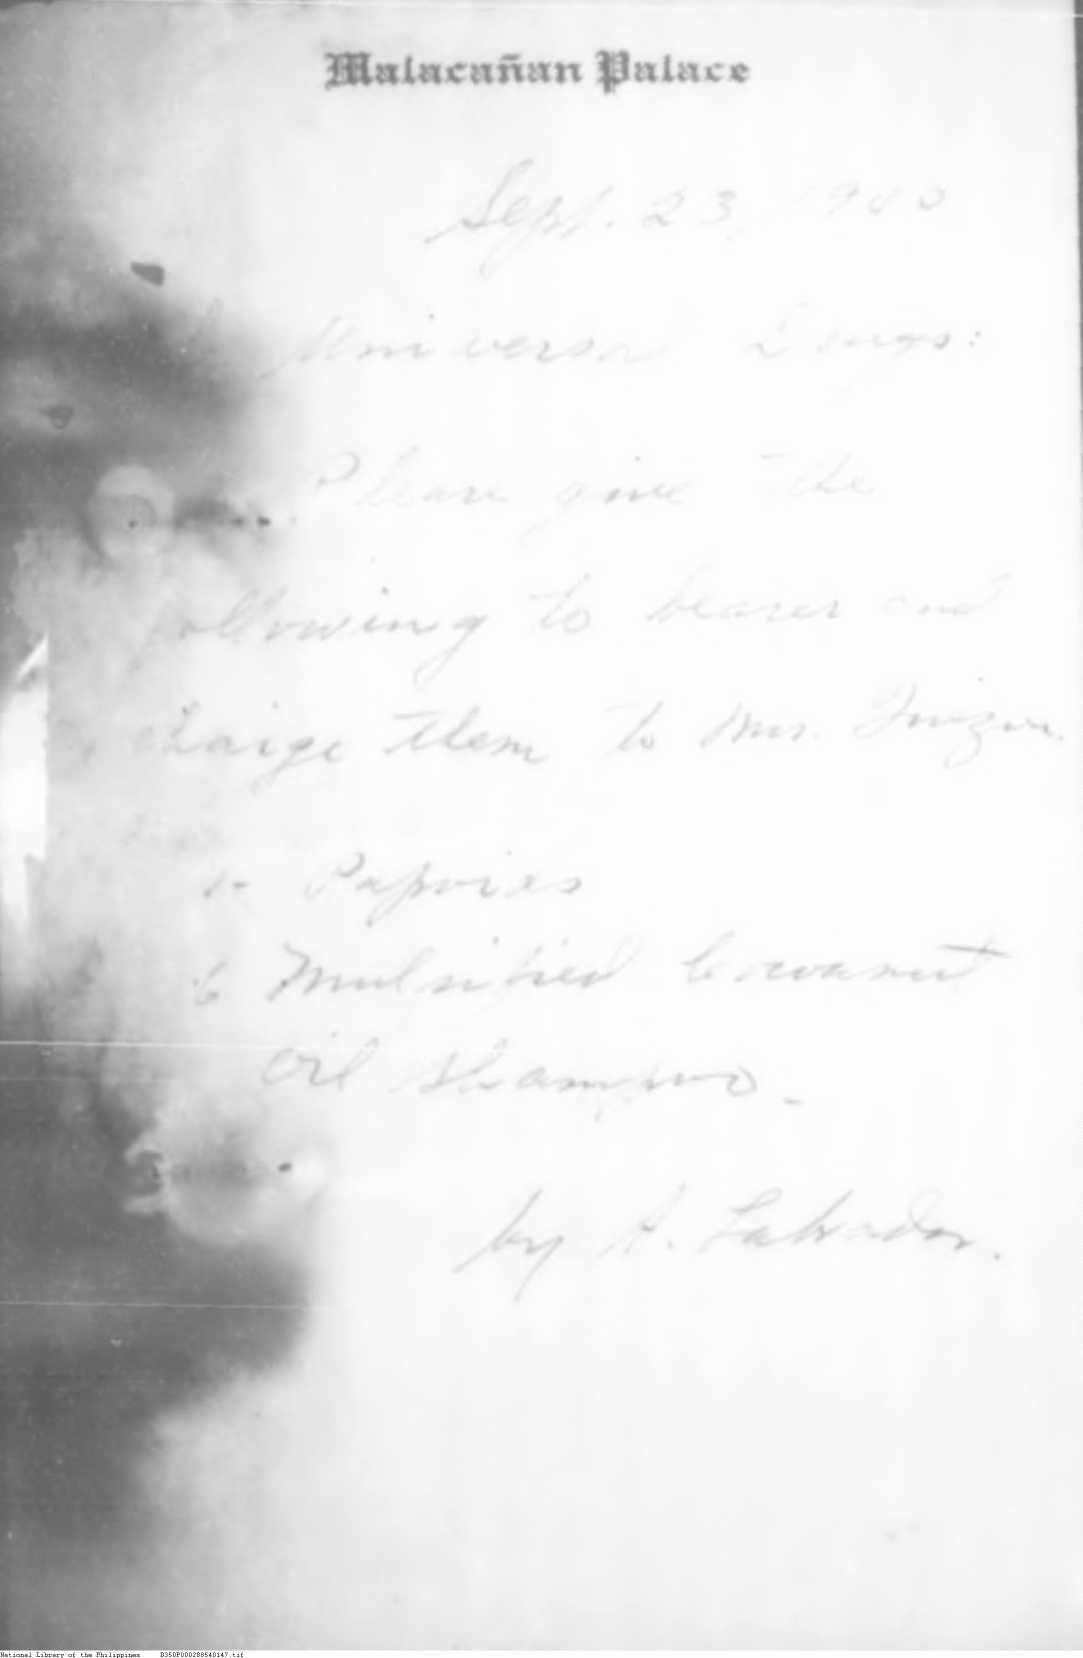 Malacañan Palace
Sept. 23, 1940
Universal Drugs:
Please give the
following to bearer and
charge them to Mrs. Quezon.
Papoies
6 Mulsified Cocoanut
Oil Shampoo.
by A. Salvador.
National Library of the Philippines D350P000288540147.tif